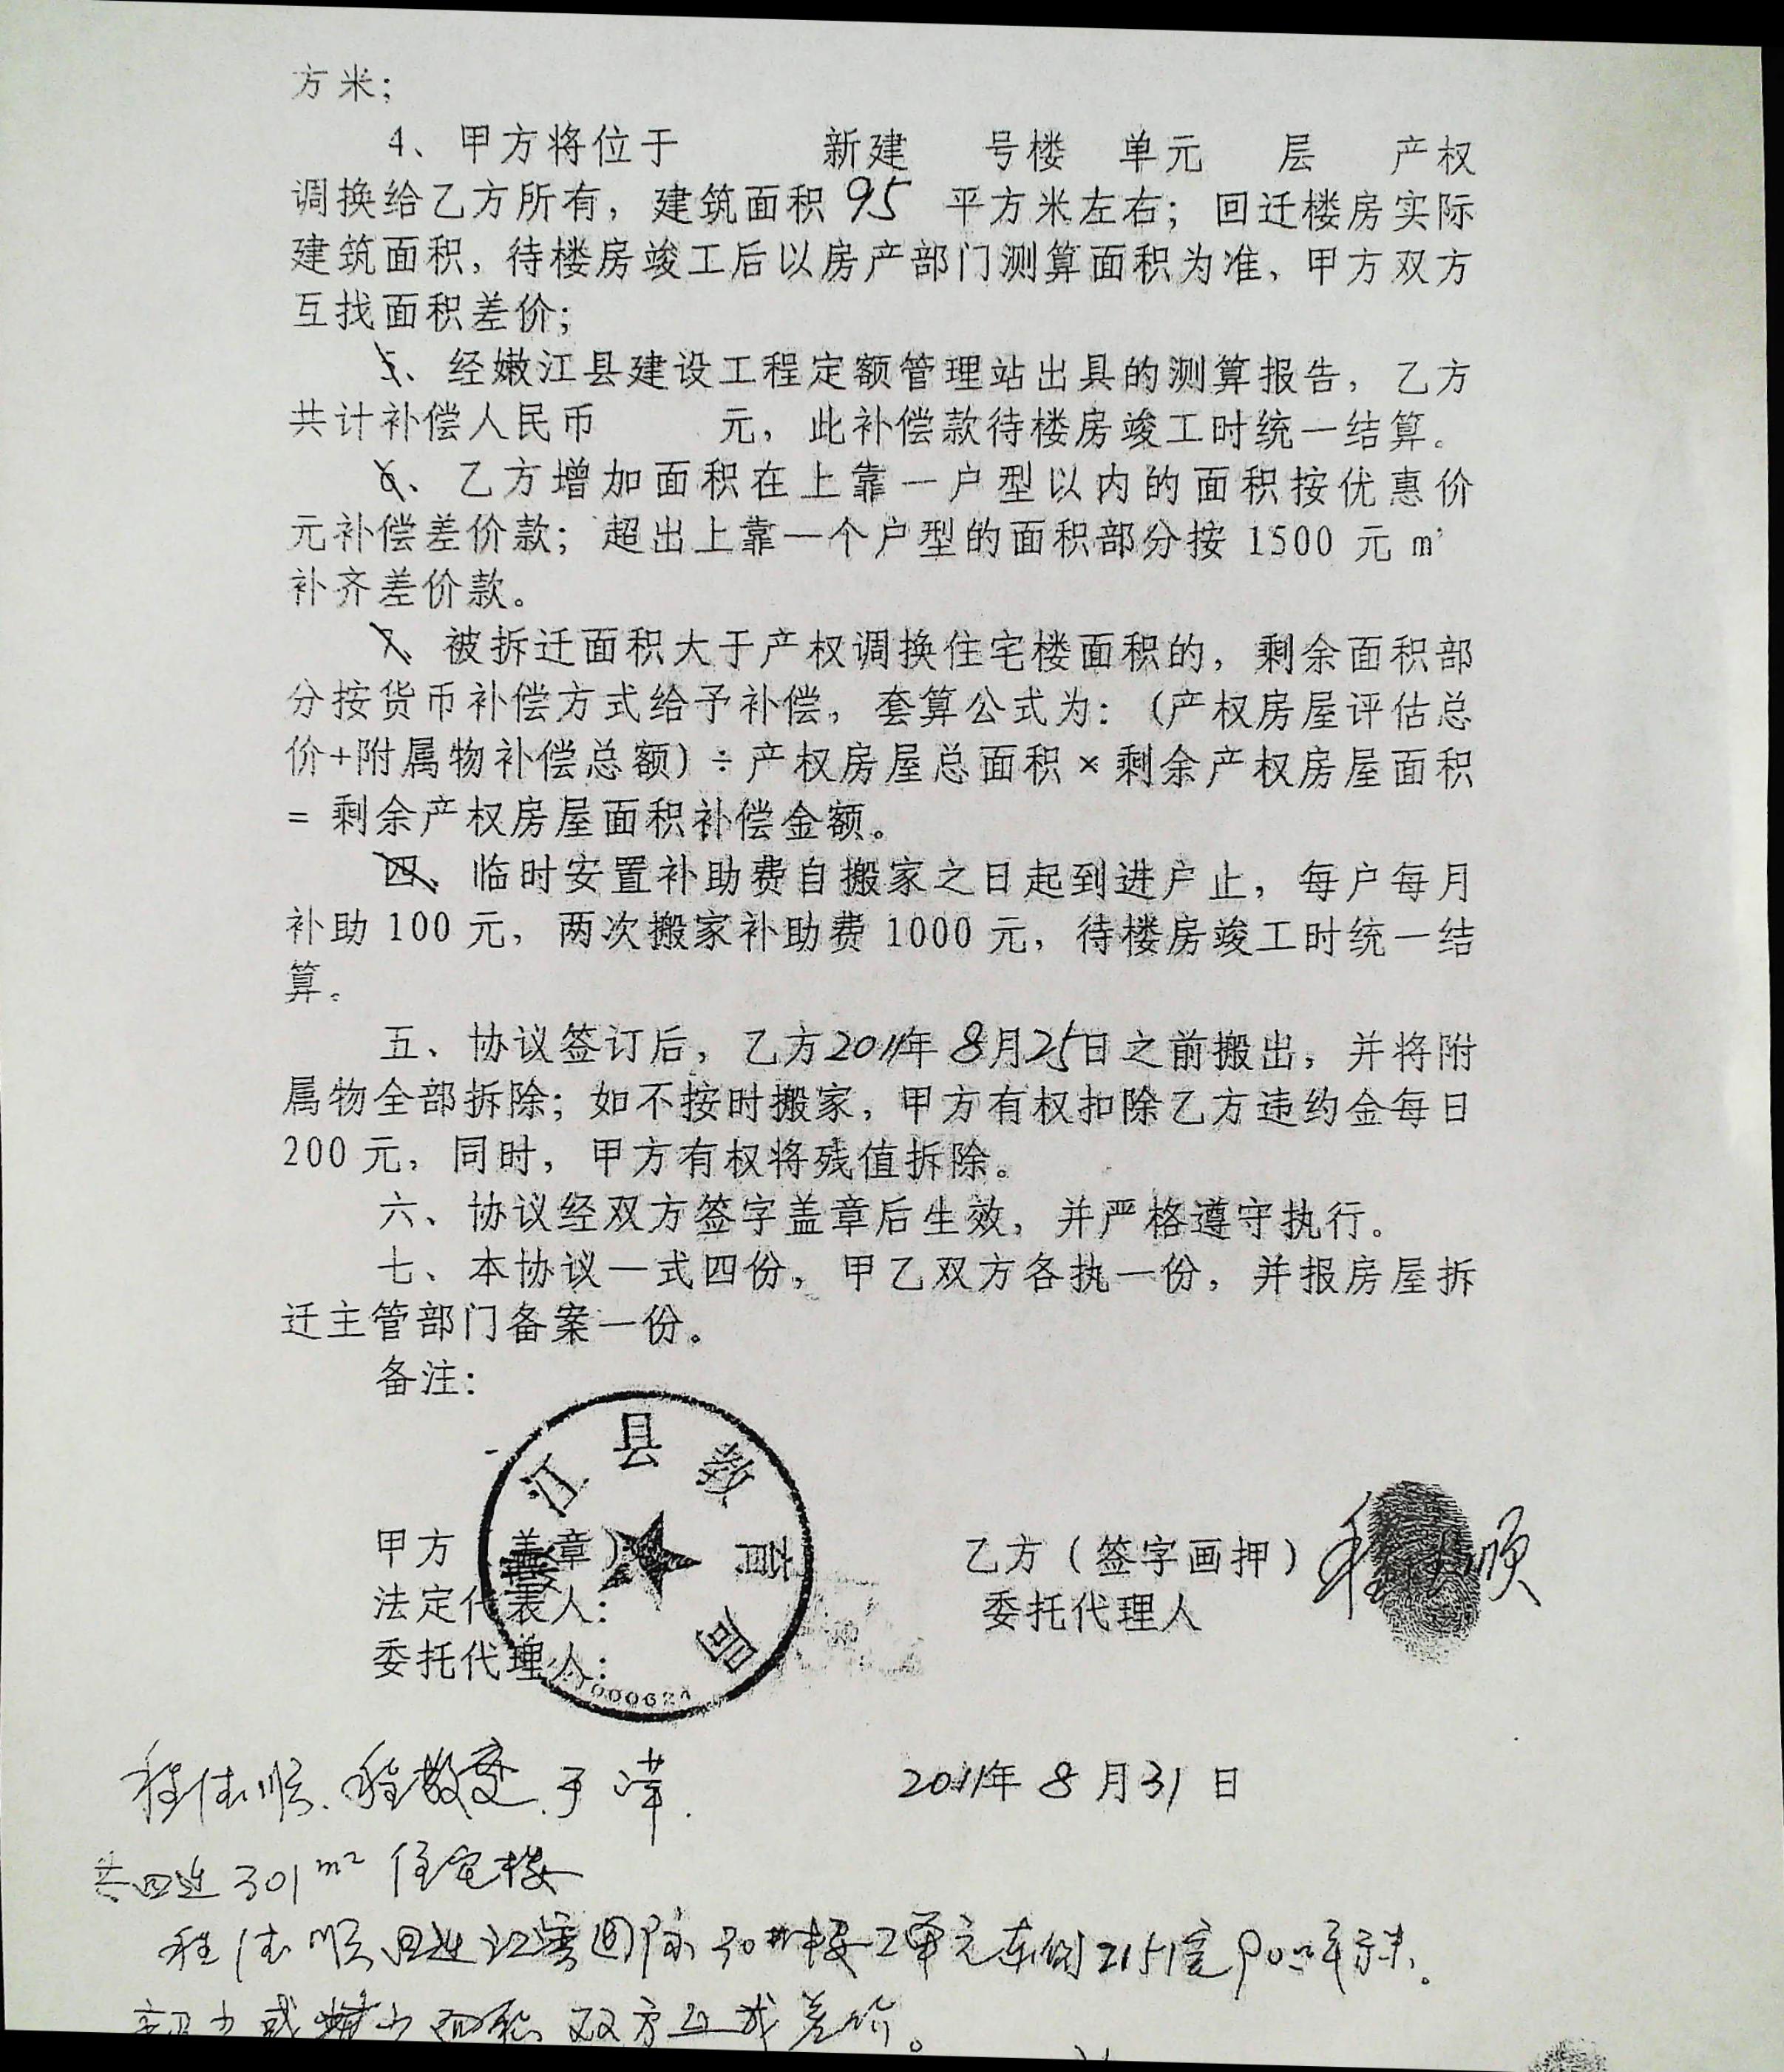 方米；
4、甲方将位于 新建 号楼 单元 层 产权
调换给乙方所有，建筑面积 95 平方米左右；回迁楼房实际
建筑面积，待楼房竣工后以房产部门测算面积为准，甲方双方
互找面积差价；
5、经嫩江县建设工程定额管理站出具的测算报告，乙方
共计补偿人民币 元，此补偿款待楼房竣工时统一结算。
6、乙方增加面积在上靠一户型以内的面积按优惠价
元补偿差价款；超出上靠一个户型的面积部分按 1500 元 m²
补齐差价款。
7、被拆迁面积大于产权调换住宅楼面积的，剩余面积部
分按货币补偿方式给予补偿，套算公式为：（产权房屋评估总
价+附属物补偿总额）÷产权房屋总面积×剩余产权房屋面积
= 剩余产权房屋面积补偿金额。
四、临时安置补助费自搬家之日起到进户止，每户每月
补助 100 元，两次搬家补助费 1000 元，待楼房竣工时统一结
算。
五、协议签订后，乙方2011年 8月25日之前搬出，并将附
属物全部拆除；如不按时搬家，甲方有权扣除乙方违约金每日
200 元，同时，甲方有权将残值拆除。
六、协议经双方签字盖章后生效，并严格遵守执行。
七、本协议一式四份，甲乙双方各执一份，并报房屋拆
迁主管部门备案一份。
备注：
江县教育局
甲方（盖章） 乙方（签字画押）程佳顺
法定代表人： 委托代理人
委托代理人：
程佳顺、程敬 于
2011年 8 月 31 日
共回迁 301 m² 住宅楼
程佳顺回迁 楼2单元东侧
面积 双方互找差价。